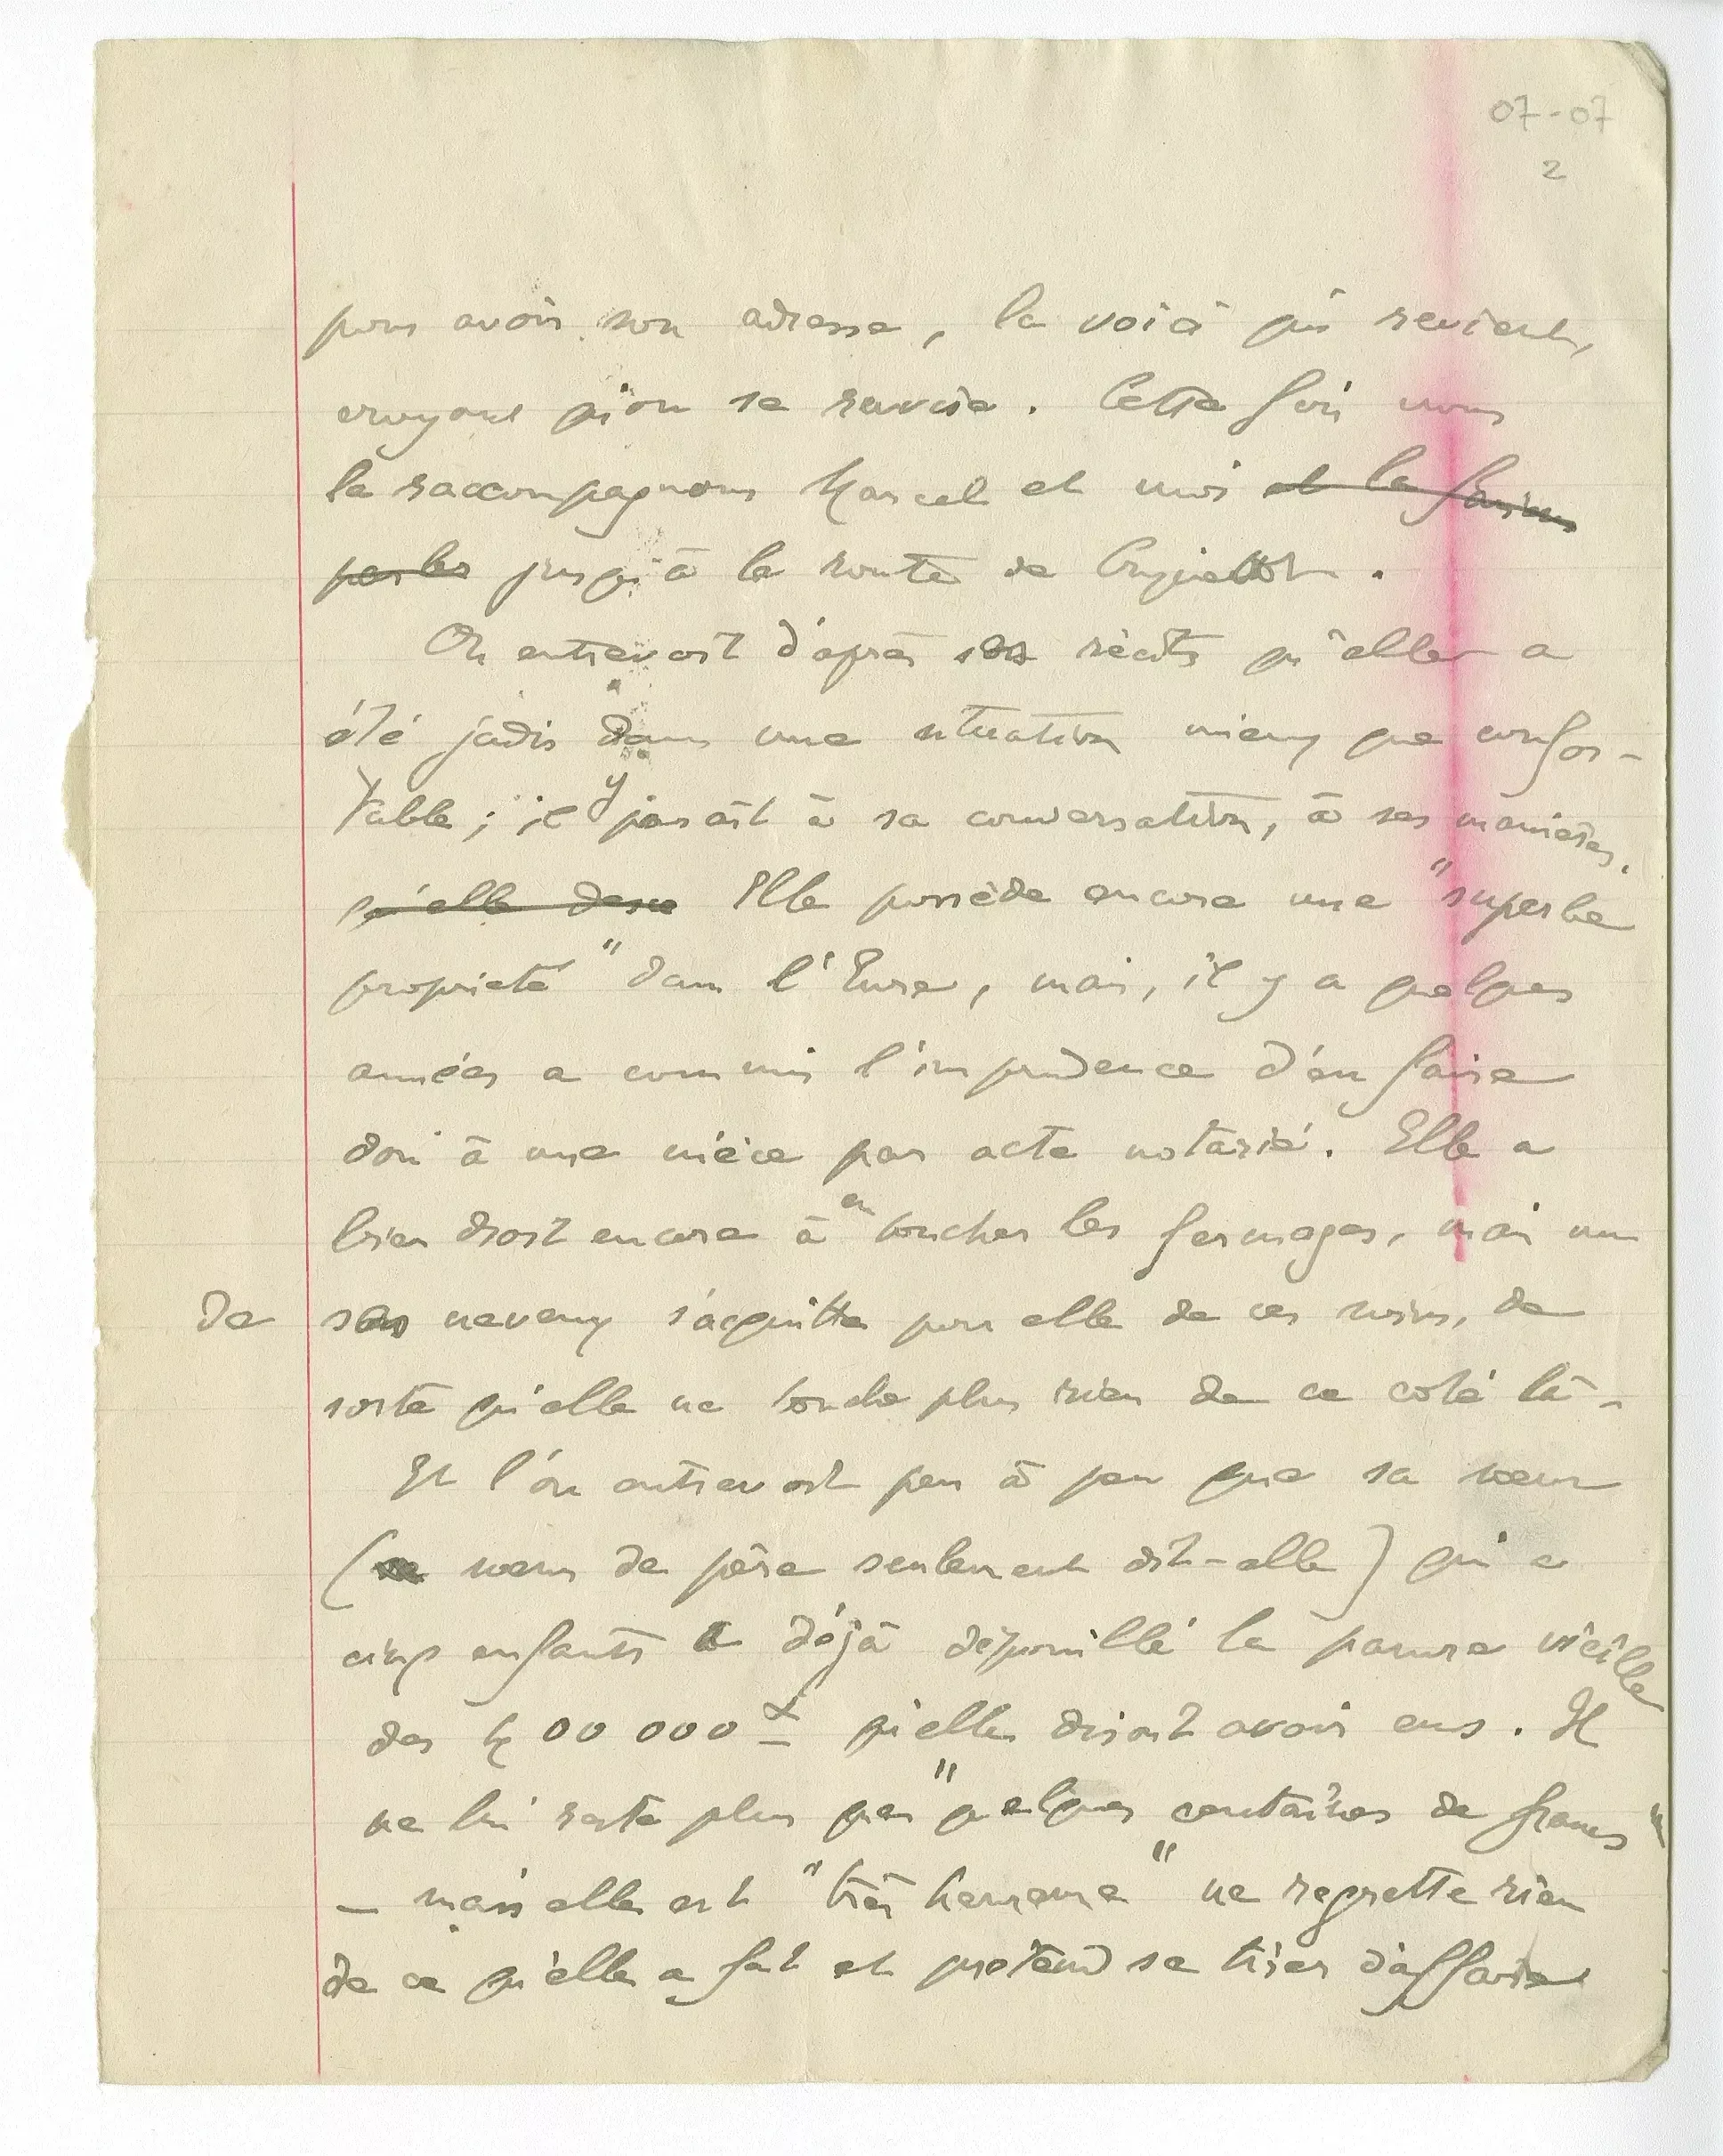 07-07
2
pour avoir son adresse, la voici qui revient,
croyant qu'on se ravise. Cette fois nous
la raccompagnons Marcel et moi et la
par les jusqu'à la route de
On entrevoit d'après ses récits qu'elle a
été jadis dans une situation mieux que confor-
table ; il y paraît à sa conversation, à ses manières.
qu'elle Elle possède encore une "superbe
propriété" dans l'Eure, mais, il y a quelques
années a commis l'imprudence d'en faire
don à une nièce par acte notarié. Elle a
bien droit encore à en toucher les fermages, mais un
de ses neveux s'acquitte pour elle de ces soins, de
sorte qu'elle ne touche plus rien de ce coté là -
Et l'on entrevoit peu à peu que sa sœur
( sœur de père seulement dit-elle) qui a
cinq enfants a déjà dépouillé la pauvre vieille
des 400 000 qu'elle disait avoir eus. Il
ne lui reste plus que "quelques centaines de francs"
— mais elle est "très heureuse" ne regrette rien
de ce qu'elle a fait et prétend se tirer d'affaire